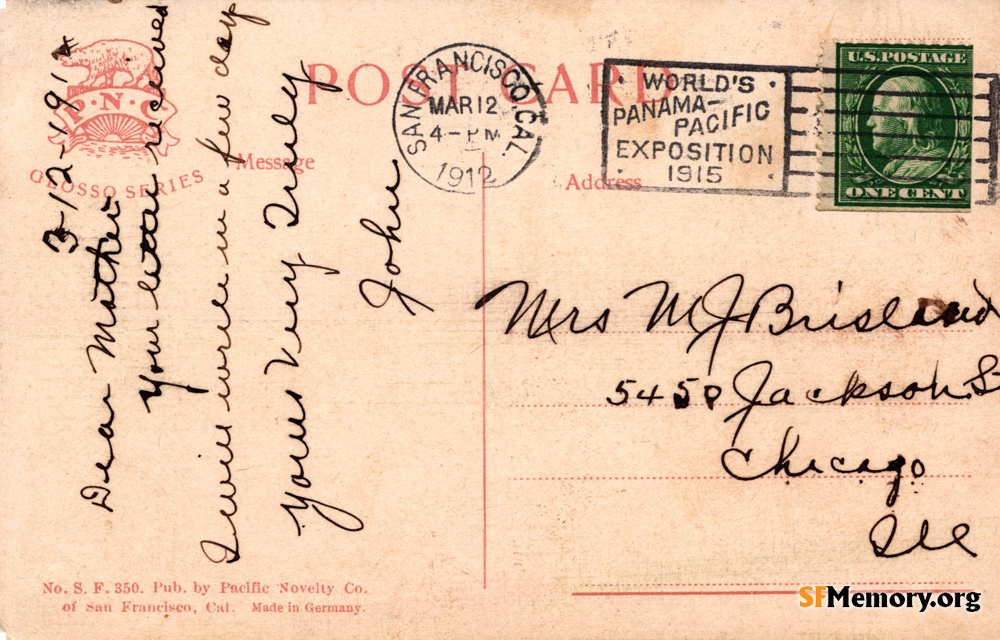 POST CARD
P. N. C.
GLOSSO SERIES
Message
Address
SAN FRANCISCO, CAL.
MAR 12
4-PM
1912
WORLD'S
PANAMA-
PACIFIC
EXPOSITION
1915
U.S. POSTAGE
ONE CENT
3-12-1912
Dear Mother
Your letter received
I will write in a few day
Yours Very Truly
John
Mrs M J Brisland
5458 Jackson St
Chicago
Ill
No. S. F. 350. Pub. by Pacific Novelty Co.
of San Francisco, Cal. Made in Germany.
SFMemory.org